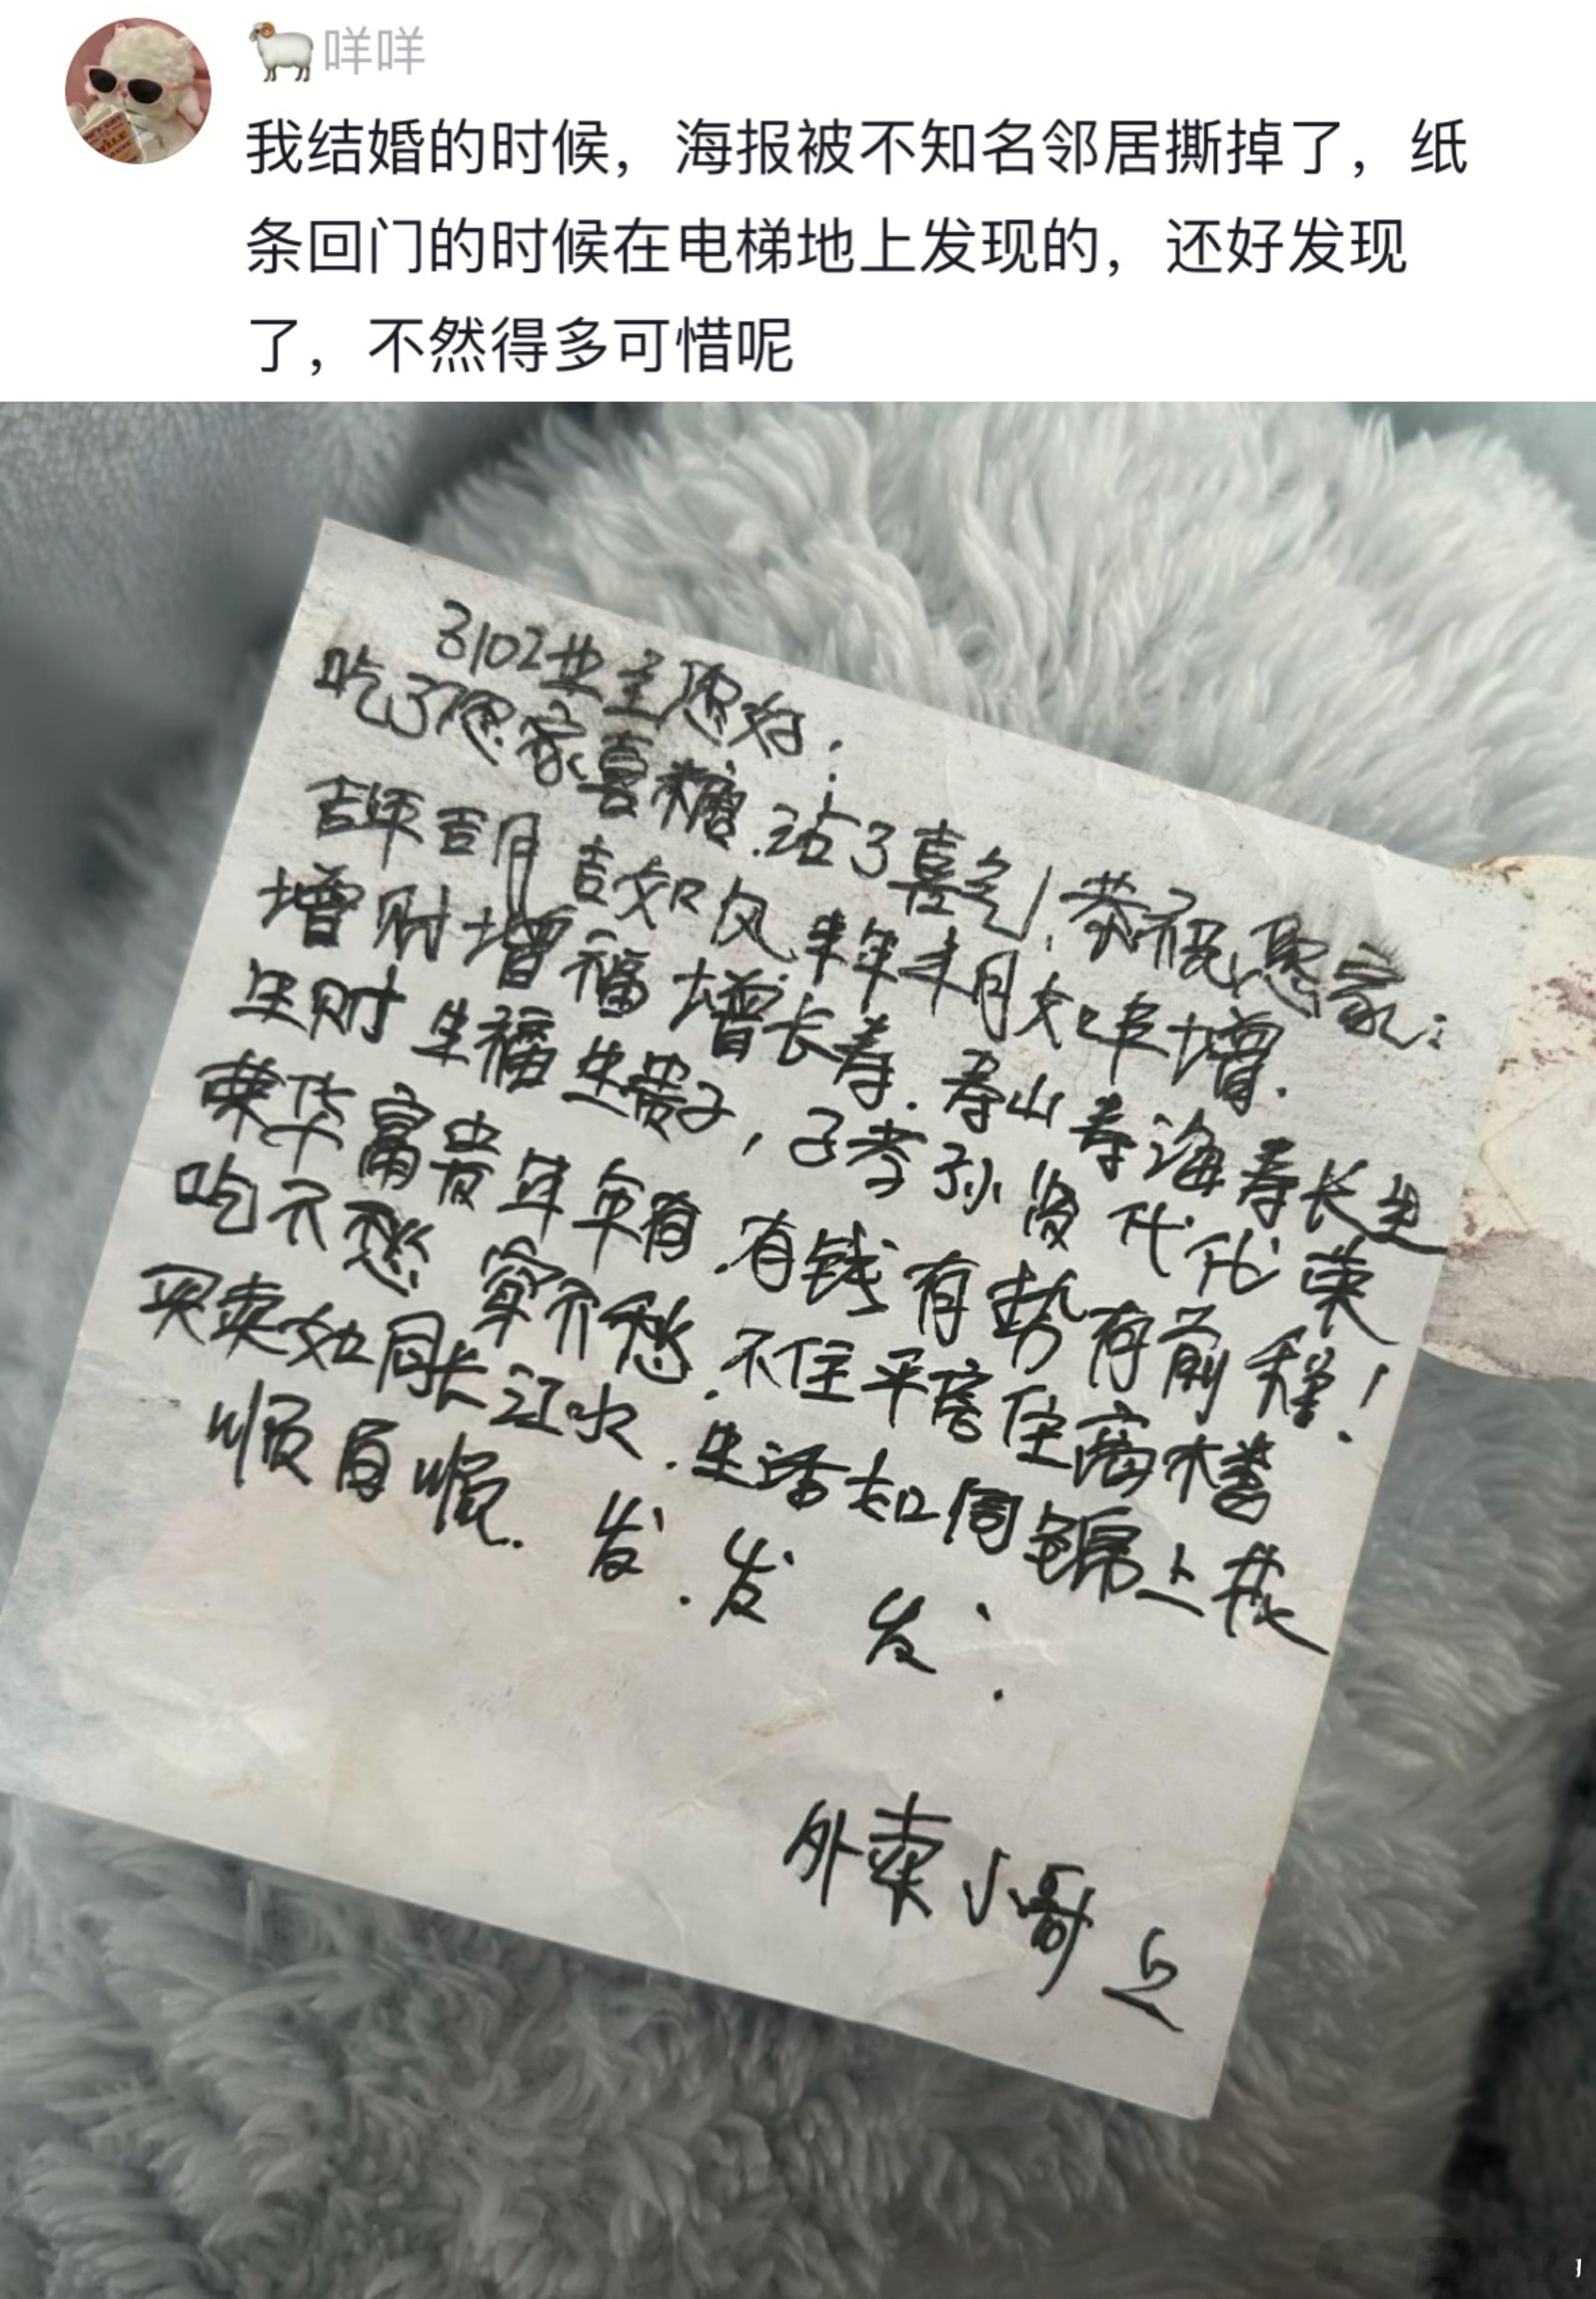 咩咩
我结婚的时候，海报被不知名邻居撕掉了，纸
条回门的时候在电梯地上发现的，还好发现
了，不然得多可惜呢
3102业主您好：
吃了您家喜糖.沾了喜气！恭祝您家：
吉年吉月吉如风.丰年丰月如年增.
增财增福增长寿.寿山寿海寿长生
生财生福生贵子，子孝孙贤代代荣
荣华富贵年年有.有钱有势有前程！
吃不愁穿不愁.不住平房住高楼
买卖如同长江水.生活如同锦上花
顺百顺.发.发发.
外卖小哥